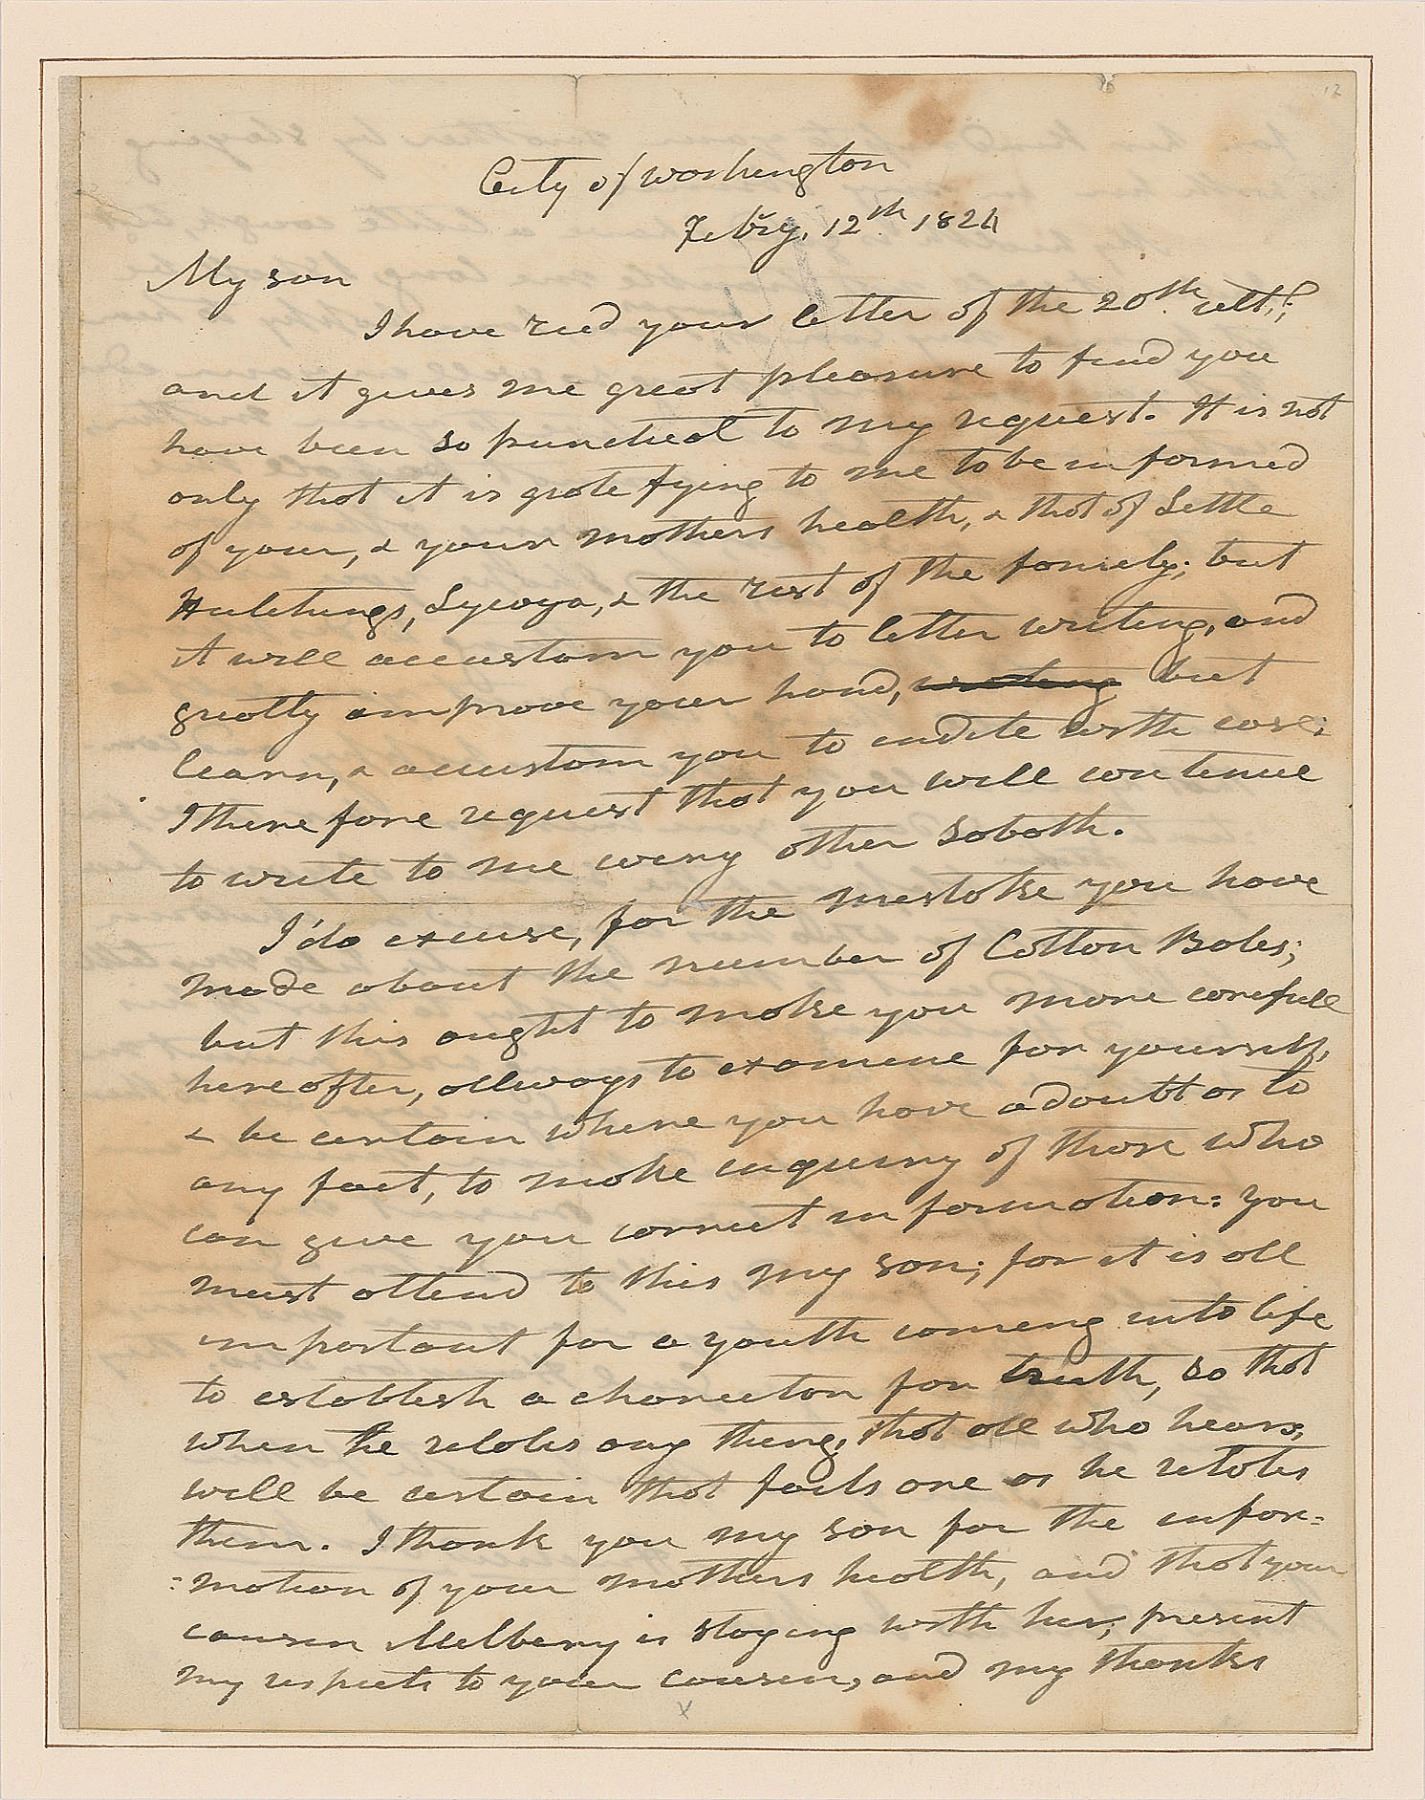 City of Washington
Febry. 12th 1824
My son
I have recd your letter of the 20th ult.;
and it gives me great pleasure to find you
have been so punctual to my request. It is not
only that it is gratefying to me to be informed
of your, & your mothers health, & that of Little
Hutchings, Lyncoya, & the rest of the family; but
it will accustom you to letter writing, and
greatly improve your hand, writing but
learn, & accustom you to endite with ease;
I therefore request that you will continue
to write to me every other Saboth.
I do excuse, for the mestake you have
made about the number of Cotton Bales;
but this ought to make you more carefull
hereafter, allways to examine for yourself,
& be certain where you have a doubt as to
any fact, to make inquiry of those who
can give you correct information: you
must attend to this my son; for it is all
important for a youth coming into life
to establish a charector for truth, so that
when he relates any thing, that all who hears,
will be certain that facts are as he relates
them. I thank you my son for the infor=
=mation of your mothers health, and that your
cousin Mulberry is staying with her; present
my respects to your cousin, and my thanks